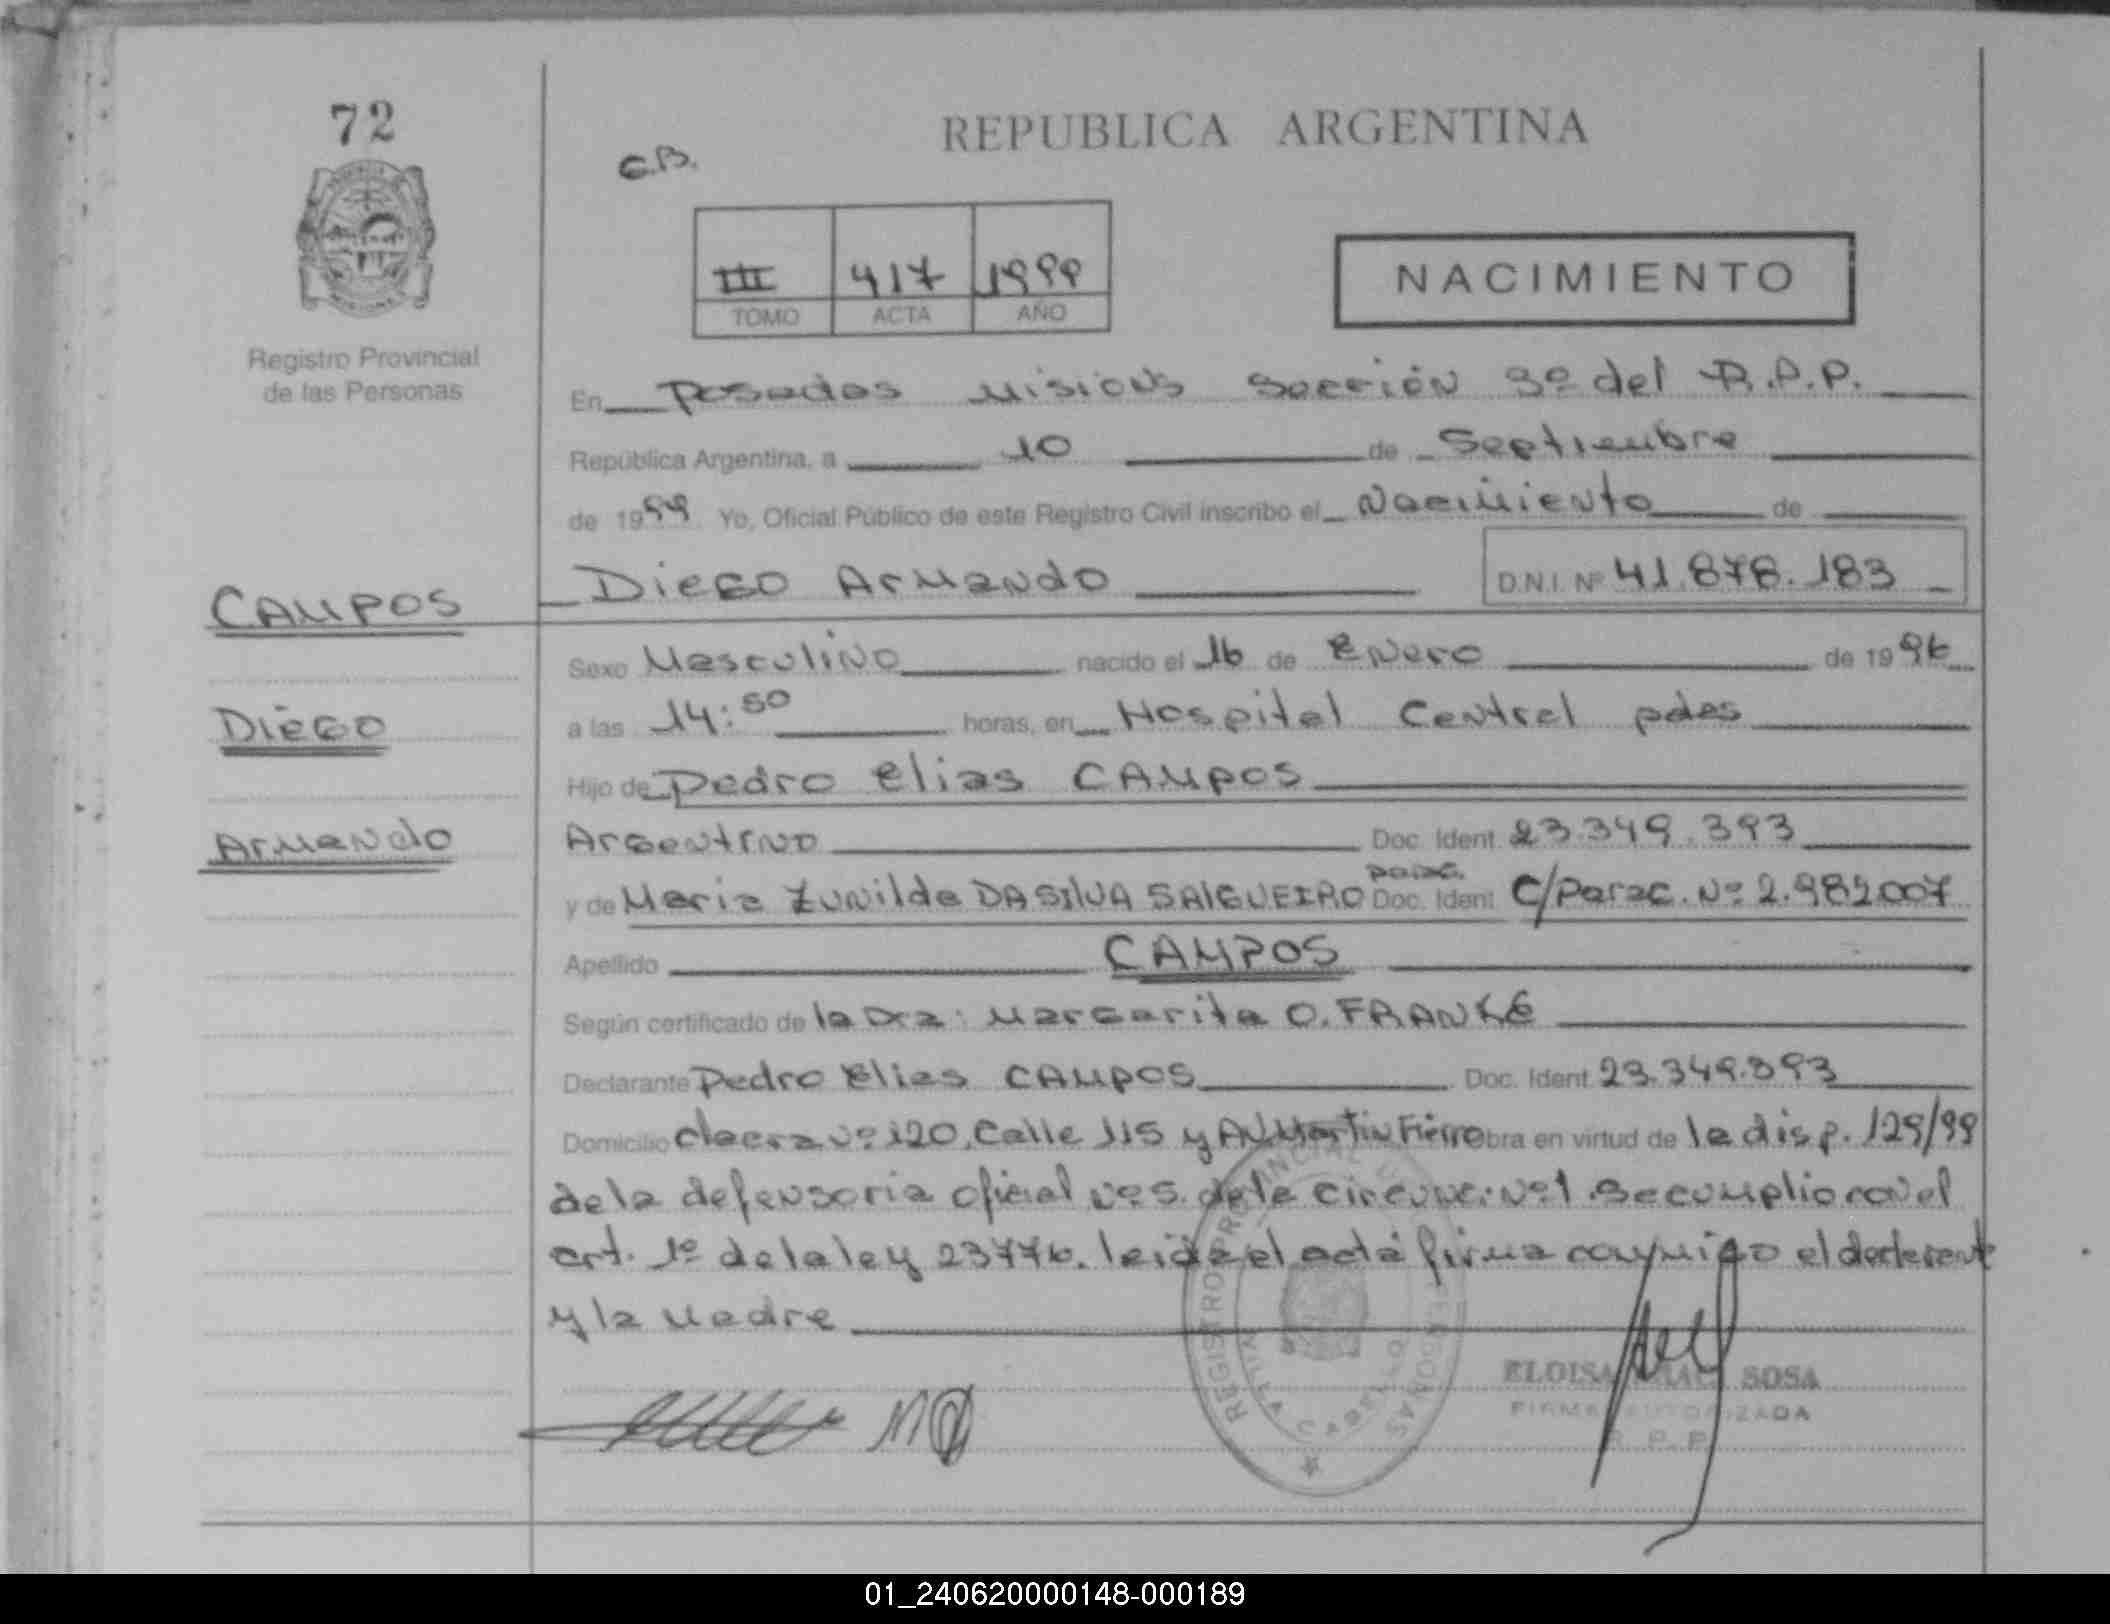 72
REPUBLICA ARGENTINA
C.B.
III 417 1999
TOMO ACTA AÑO
NACIMIENTO
Registro Provincial
de las Personas
En Posadas Misions Sección 3º del R.P.P.
República Argentina, a 10 de Septiembre
de 1999 Yo, Oficial Público de este Registro Civil inscribo el Nacimiento de
CAMPOS
Diego Armando D.N.I. Nº 41.878.183
Sexo Masculino nacido el 16 de Enero de 1996
Diego
a las 14:50 horas, en Hospital Central pdas
Hijo de Pedro Elias CAMPOS
Armando
Argentino Doc. Ident. 23.349.393
y de Maria Zunilda DA SILVA SALGUEIRO parag. Doc. Ident. C/Parag. Nº 2.982.007
Apellido CAMPOS
Según certificado de la Dra: Margarita O. FRANKE
Declarante Pedro Elias CAMPOS Doc. Ident. 23.349.393
Domicilio chacra Nº 120, Calle 115 y AV. Martin Fierro obra en virtud de la disp. 129/99
de la defensoria oficial Nº 5. de la circunc. Nº 1. Se cumplio con el
art. 1º de la ley 23776. leida el acta firma conmigo el declarante
y la Madre
REGISTRO PROVINCIAL
ELOISA SOSA
FIRMA AUTORIZADA
R. P. P.
01_240620000148-000189